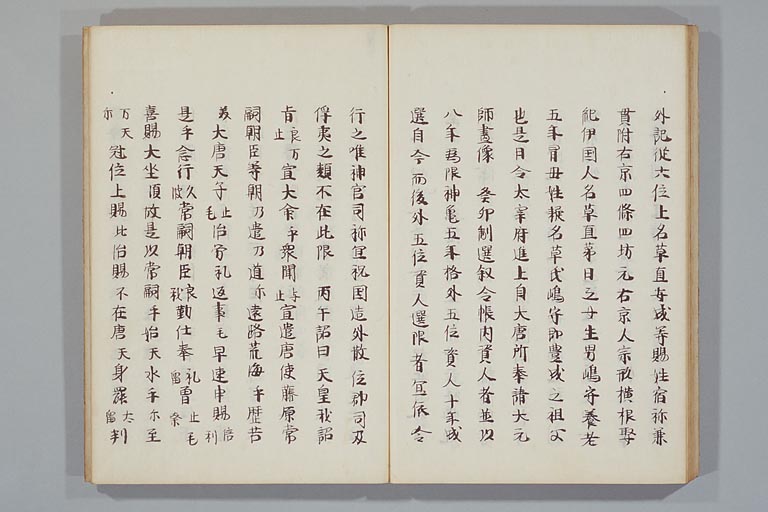 外記従六位上名草直安成等賜姓宿祢兼
貫附右京四條四坊元右京人宗敀横根娶
紀伊国人名草直弟日之女生男嶋守養老
五年冒母姓報名草氏嶋守即豊成之祖父
也是日令太宰府進上自大唐所奉請大元
師畫像　癸卯制選叙令帳内資人者並以
八年為限神亀五年格外五位資人十年成
選自今而後外五位資人選限者宜依令
行之唯神官司祢宜祝国造外散位郡司及
俘夷之類不在此限　丙午詔曰天皇我詔
旨良万止宣大命乎衆聞与止宣遣唐使藤原常
嗣朝臣等朝乃遣乃道尓遠路荒海乎歴
大唐天子毛治労礼返事毛早速申賜倍利
是乎念行久波常嗣朝臣良我勤仕奉礼留曽止毛
喜賜大坐須故是以常嗣乎始天水手尓至
万天尓冠位上賜比治賜不在唐天身罷太留判